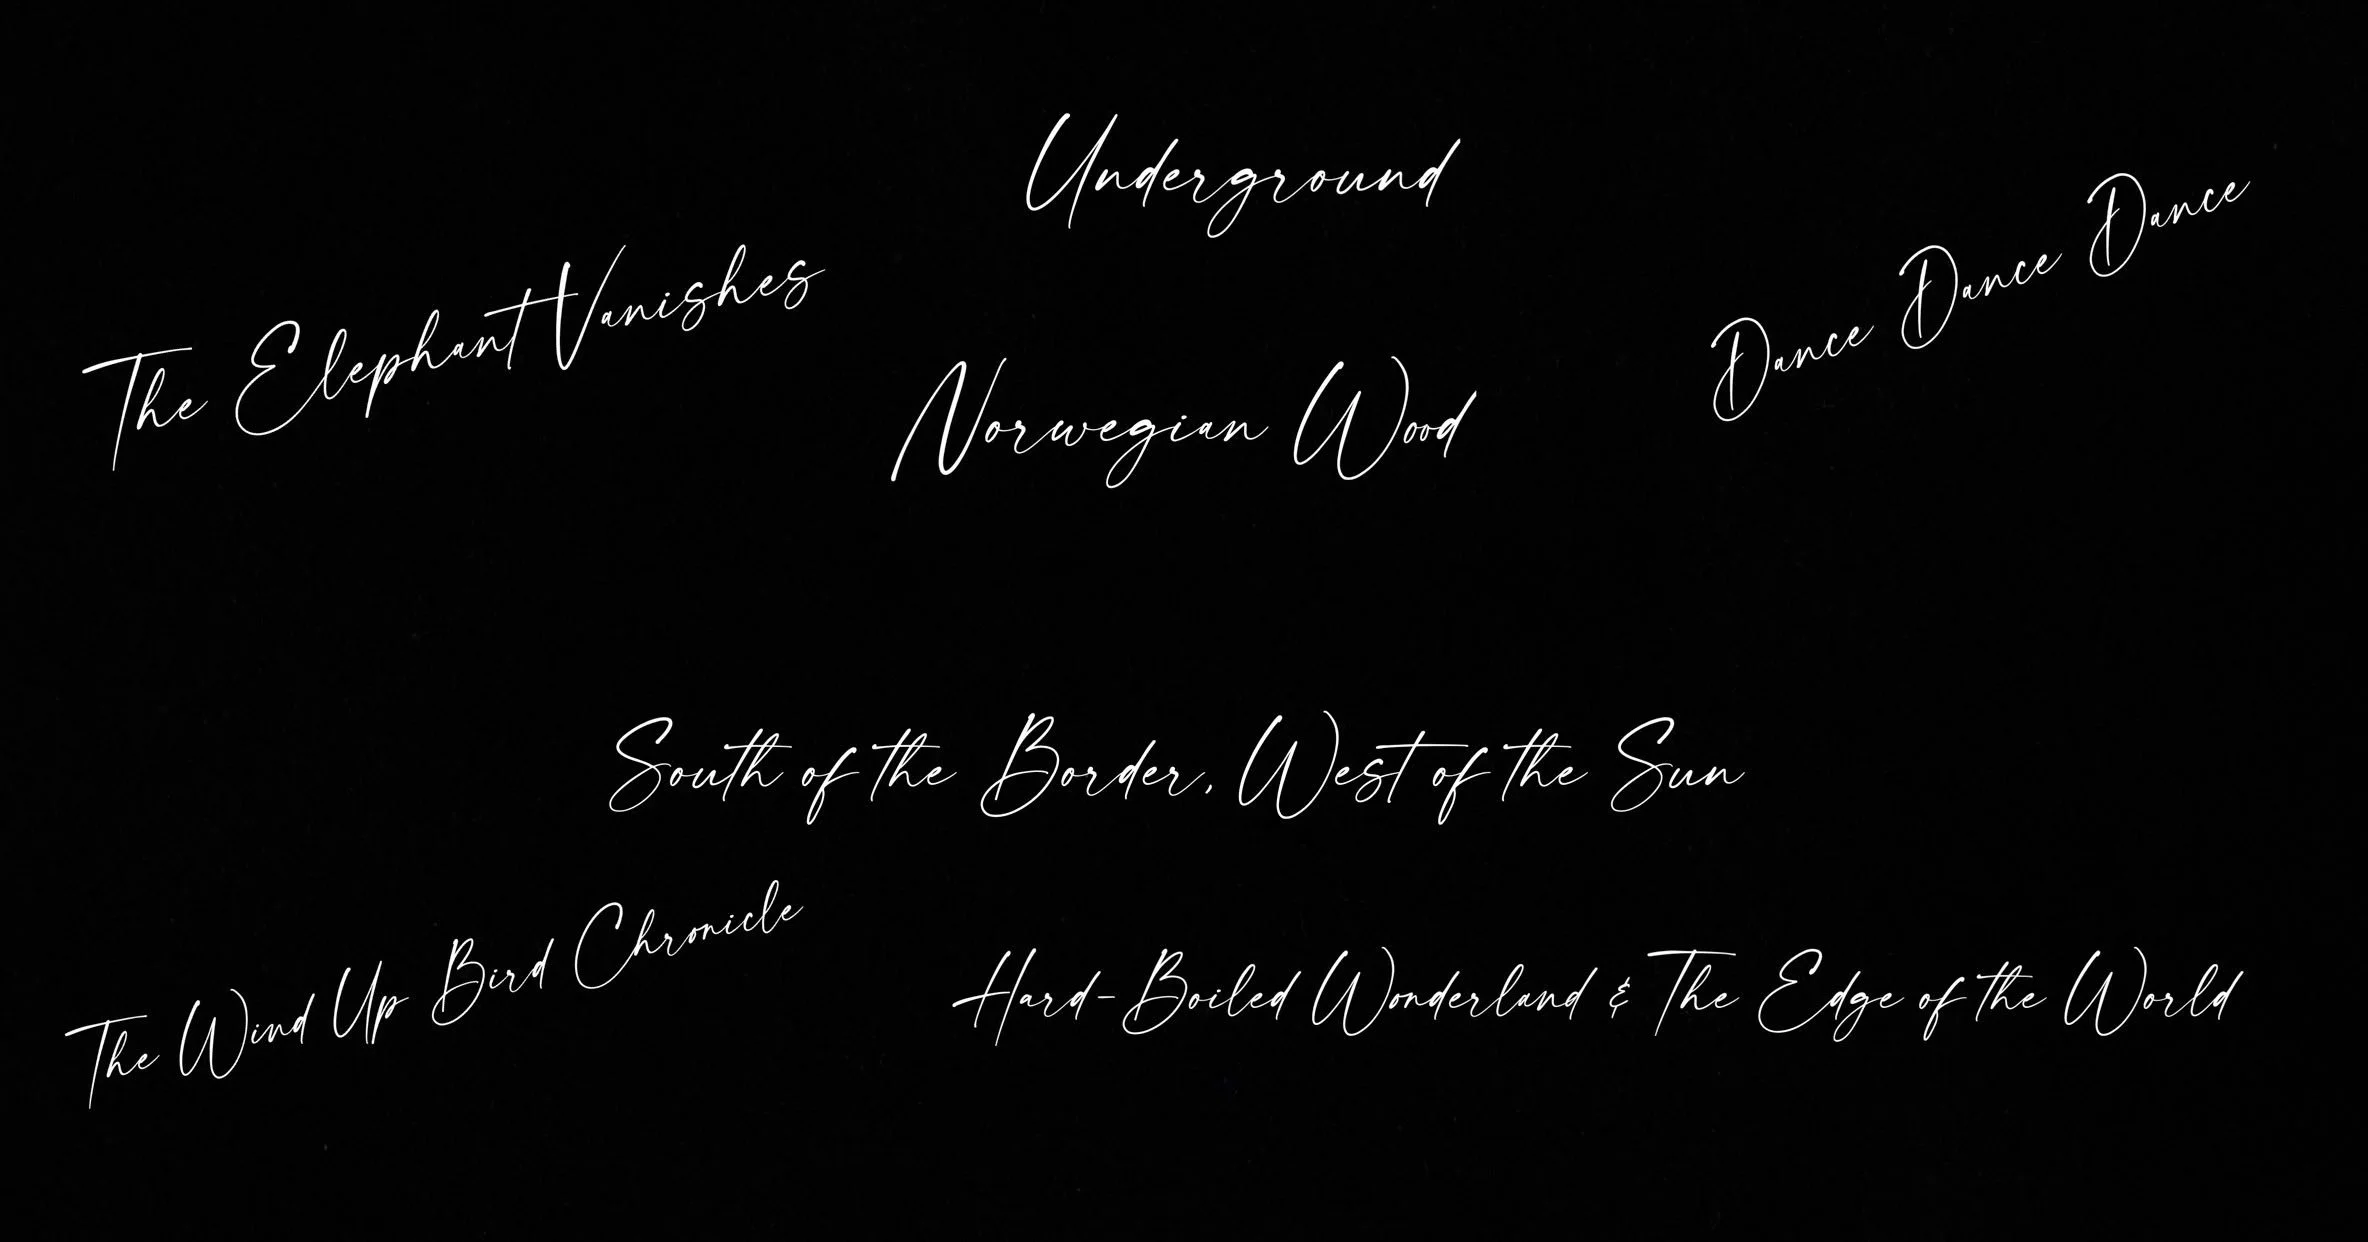 Underground
The Elephant Vanishes
Dance Dance Dance
Norwegian Wood
South of the Border, West of the Sun
The Wind Up Bird Chronicle
Hard-Boiled Wonderland & The Edge of the World